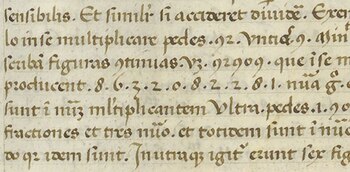 sensibilis. Et similr si accideret diuide. Exem
lo in se multiplicare pedes .92. Vntie .9. Min
scuba figuras 9tinuas .Vz. 92909. que i se m
producent .8.6.3.2.0.8.2.2.8.1. nua g.
sunt i nuz mltiplicantem Vltra. pedes .1.90
fractiones et tres nuo. et totidem sunt i nue
do qr idem sunt. In utraqz igit erunt sex fig